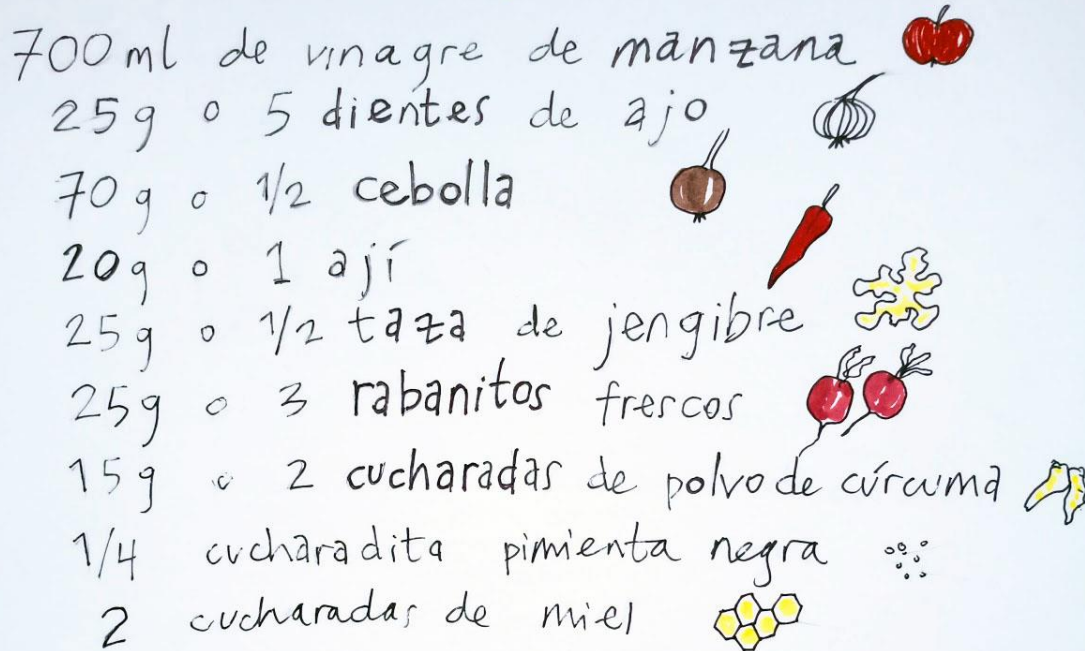 700ml de vinagre de manzana
25g o 5 dientes de ajo
70g o 1/2 cebolla
20g o 1 ají
25g o 1/2 taza de jengibre
25g o 3 rabanitos frescos
15g o 2 cucharadas de polvo de cúrcuma
1/4 cucharadita pimienta negra
2 cucharadas de miel